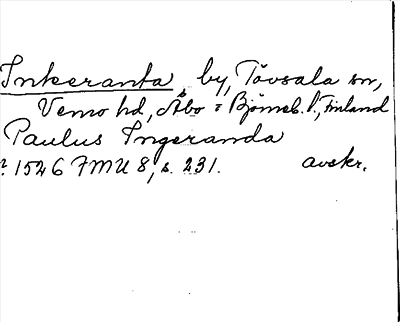 Inkeranta, by, Tövsala sn,
Vemo hd, Åbo o Björneb. l., Finland
Paulus Ingeranda
? 1546 FMU 8, s. 231. avskr.